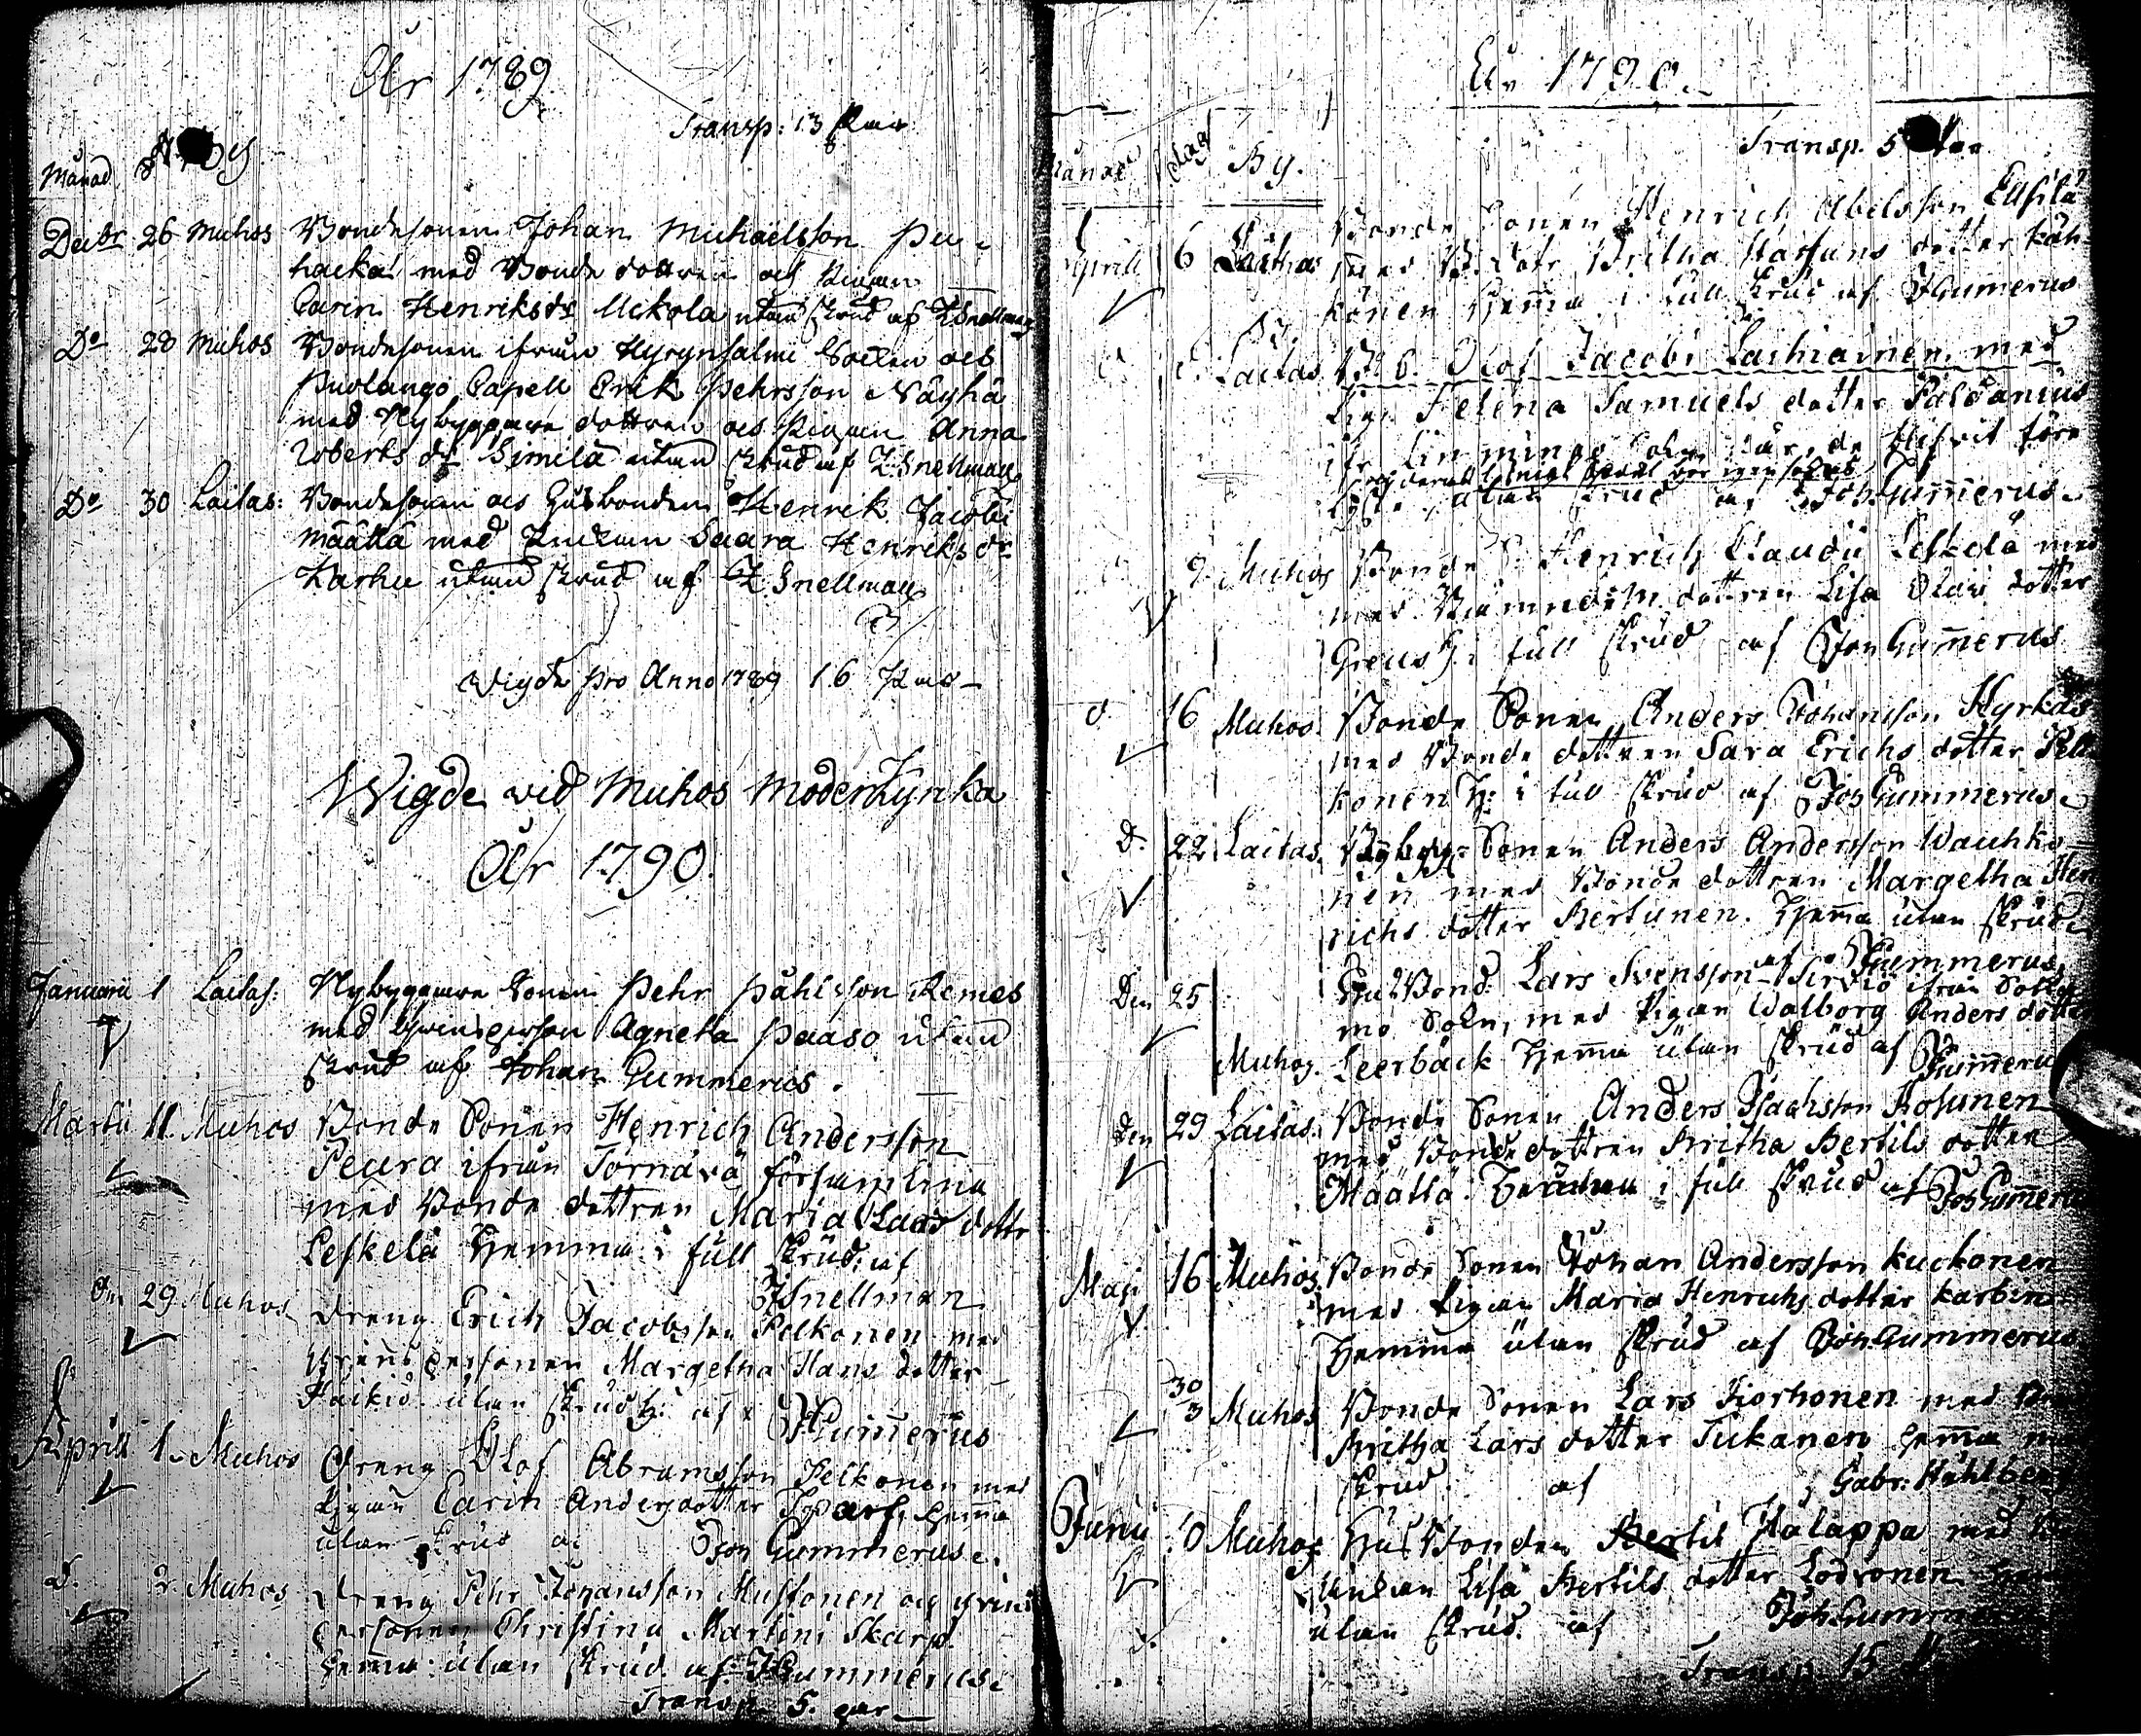 År 1789.
Transp: 13 Paar
Månad
Decbr 26 Muhos Bondesonen Johan Michaelsson Pu-
hacka med Bonde dottren och Pigan
Carin Henriksdr Uckola utan skrud af Z Snellman
Do 28 Muhos Bondesonen ifrån Hyrynsalmi Socken och
Puolango Capell Erik Pehrsson Näyhä
med Nybyggare dottren och Pigan Anna
Roberts dr Similä utan skrud af Z. Snellman
Do 30 Laitas: Bondesonen och Husbonden Henrik Jacobi
Määttä med Enckan Saara Henriksdr
Karhu utan skrud af Z Snellman
Wigde pro Anno 1789 16 Paar
Wigde wid Muhos Moderkyrka
År 1790.
Januarii 1 Laitas: Nybyggare Sonen Pehr Påhlsson Remes
med qwinsperson Agneta Paaso utan
skrud af Johan Gummerus.
Martii 11. Muhos Bonde Sonen Henrich Andersson
Peura ifrån Tornävä församling
med Bonde dottren Maria Clas dotter
Leskelä hemma i full skrud: af
Z Snellman
Den 29 Muhos Dreng Erich Jacobsson Pelkonen med
qvinspersonen Margetha Hans dotter
Häikiö utan skrud h: af JGummerus
Aprill 1. Muhos Dreng Olof Abramsson Pelkonen med
Pigan Carin Andersdotter hemma
utan skrud af Joh Gummerus.
D. 2. Muhos Dreng Pehr Johansson Mustonen och qvins
personen Christina Martini Skarp
hemma utan skrud af JGummerus.
Transp. 5. par
År 1790.
Transp. 5
Månad dag By.
Aprill 6 Laitas Bonde Sonen Henrich Abelsson Ellsilä
med B. dotr Britha Staffans dotter Käh-
könen hemma i full skrud af JGummerus
Laitas B. S. Olof Jacobi Laihiainen med
Pigan Helena Samuels dotter Paldanius
ifr Limmingo
utan skrud af Joh. Gummerus
9 Muhos Bonde S. Henrich Claudii Leskelä med
dottren Lisa Olai dotter
Greus h: i full skrud af Joh Gummerus
d 16 Muhos Bonde Sonen Anders Johansson Kyrkäs
med Bonde dottren Sara Erichs dotter Pell
konen h: i full skrud af Joh Gummerus
D. 22 Laitas. Nybygg: Sonen Anders Andersson Wauhko
nen med Bonde dottren Margetha Hen
richs dotter Kertunen. hema utan skrud
af JGummerus
Den 25 Hus Bond. Lars Svensson Sirviö ifrån Sotka
mo Sokn, med Pigan Walborg Anders dotter
Muhos. Leerbäck hema utan skrud af JGummerus
Den 29 Laitas. Bonde Sonen Anders Isachsson Kohunen
med Bonde dottren Britha Bertils dotter
Määttä. hemma i full skrud af Joh Gummerus
Maji 16 Muhos Bonde Sonen Johan Andersson Kuckonen
med Pigan Maria Henrichs dotter Karbin
hemma utan skrud af Joh. Gummerus
30
3 Muhos Bonde Sonen Lars Kiorhonen med
Britha Lars dotter Tukanen hema
skrud. af Gabr: Hahlberg
Junii 10 Muhos Hus Bonden Bertil Halappa med
Änkan Lisa Bertils dotter Lodvonen
utan skrud. af Joh. Gummerus
Transp. 15